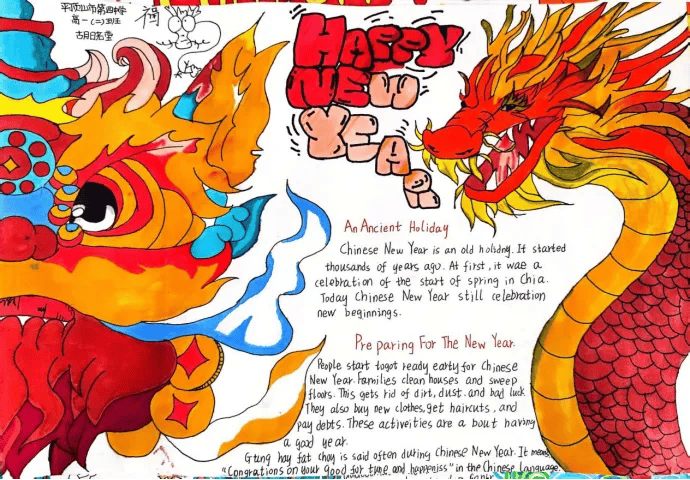 平顶山市第四中学
高一(二)班
福
HAPPY
NEW
YEAR
An Ancient Holiday
Chinese New Year is an old holsdng. It started
thousands of years ago. At first, it wae a
celebration of the start of spring in Chia.
Today Chinese New Year still celebration
new beginnings.
Pre paring For The New Year
People start togot ready earty for Chinese
New Year. Families clean houses and sweep
floars. This gets rid of dirt, dust. and bad luck
They also buy new clothes, get haircuts, and
pay debts. These activeities are a bout having
a good year.
Gung hay fat choy is said often during Chinese New Year. It means
"Congrations on your good for tune and happeniss" in the Chinese language.